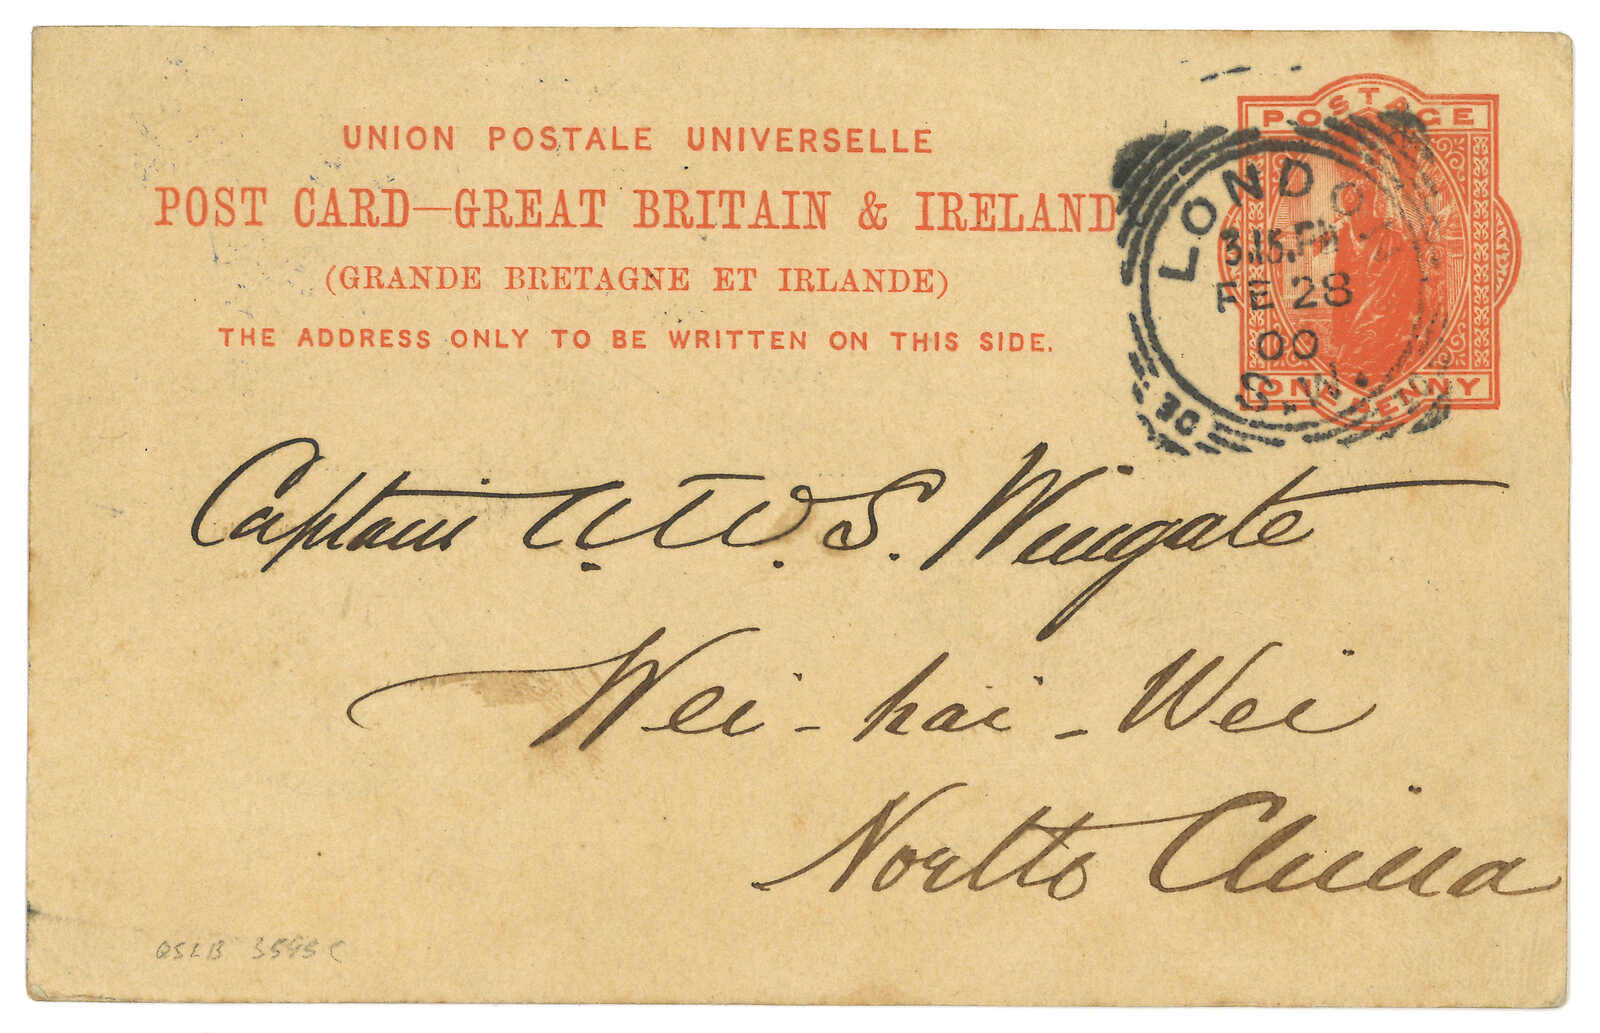 UNION POSTALE UNIVERSELLE
POST CARD—GREAT BRITAIN & IRELAND
(GRANDE BRETAGNE ET IRLANDE)
THE ADDRESS ONLY TO BE WRITTEN ON THIS SIDE.
POSTAGE
ONE PENNY
LONDON
3.15.PM
FE 28
00
S.W.
Captain A. W. S. Wingate
Wei-hai-Wei
North China
QSLB 3595C